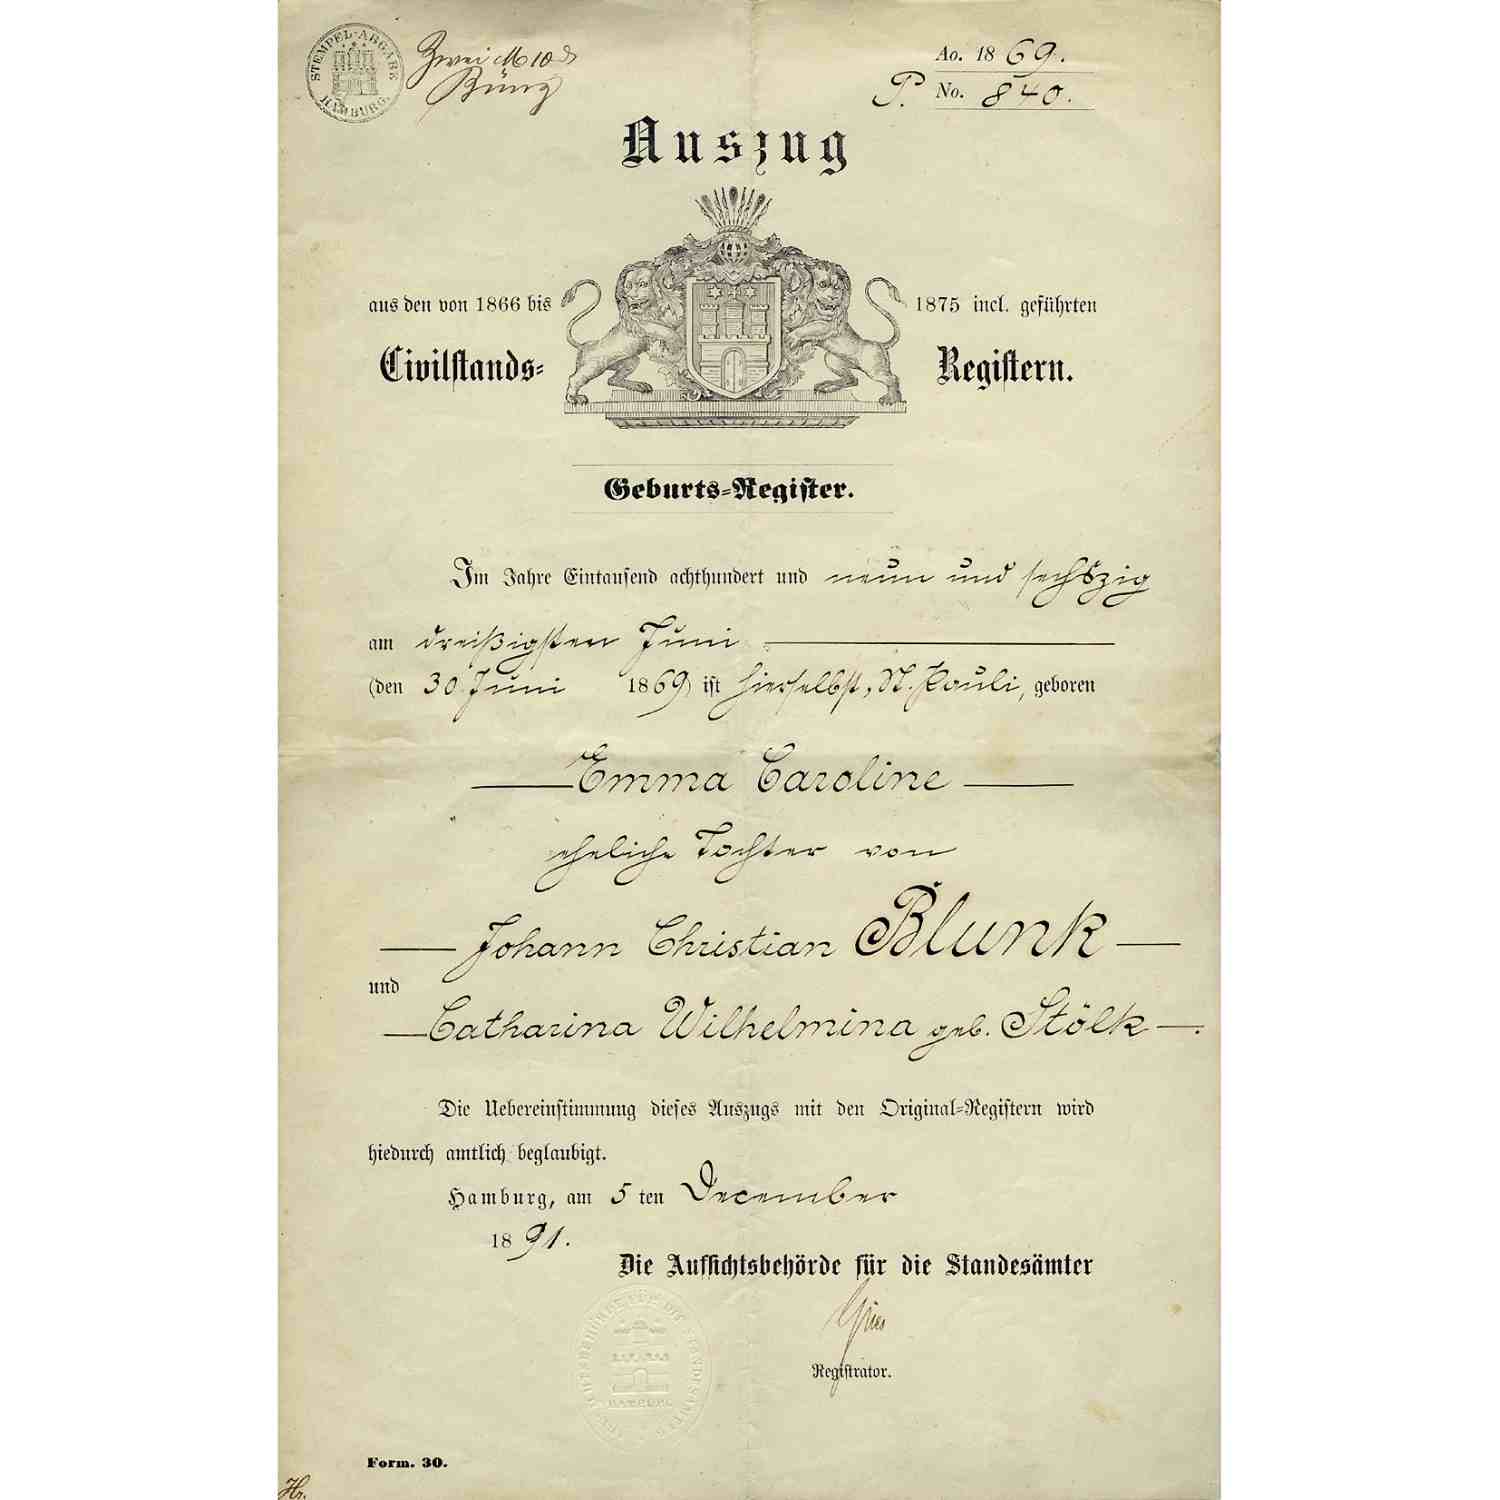 STEMPEL-ABGABE HAMBURG.
Zwei M 10 δ
Ao. 1869.
P. No. 840.
Auszug
aus den von 1866 bis 1875 incl. geführten
Civilstands- Registern.
Geburts-Register.
Im Jahre Eintausend achthundert und neun und sechszig
am dreißigsten Juni
(den 30. Juni 1869) ist hierselbst, St. Pauli, geboren
Emma Caroline
eheliche Tochter von
Johann Christian Blunk
und
Catharina Wilhelmina geb. Stölk.
Die Uebereinstimmung dieses Auszugs mit den Original-Registern wird
hiedurch amtlich beglaubigt.
Hamburg, am 5 ten December
1891.
Die Aufsichtsbehörde für die Standesämter
Registrator.
HAMBURG
Form. 30.